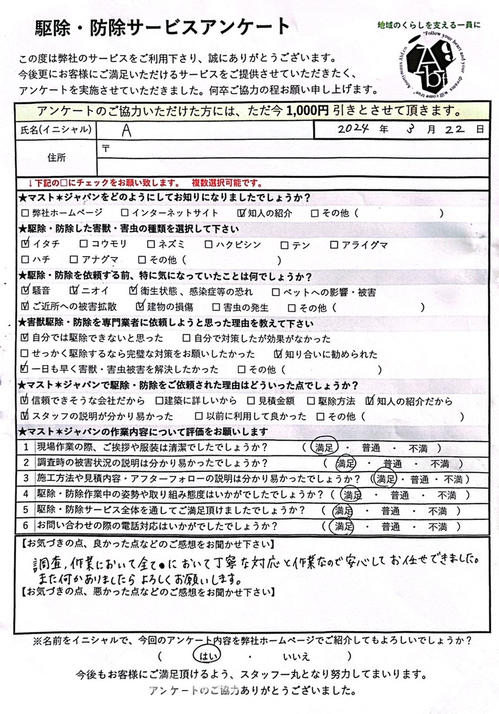 駆除・防除サービスアンケート
地域のくらしを支える一員に
この度は弊社のサービスをご利用下さり、誠にありがとうございます。
今後更にお客様にご満足いただけるサービスをご提供させていただきたく、
アンケートを実施させていただきました。何卒ご協力の程お願い申し上げます。
アンケートのご協力いただけた方には、ただ今1,000円引きとさせて頂きます。
氏名(イニシャル) A 2024 年 3 月 22 日
住所 〒
↓下記の□にチェックをお願い致します。 複数選択可能です。
★マスト*ジャパンをどのようにしてお知りになりましたでしょうか?
□弊社ホームページ □インターネットサイト ☑知人の紹介 □その他( )
★駆除・防除した害獣・害虫の種類を選択して下さい
☑イタチ □コウモリ □ネズミ □ハクビシン □テン □アライグマ
□ハチ □アナグマ □その他( )
★駆除・防除を依頼する前、特に気になっていたことは何でしょうか?
☑騒音 ☑ニオイ ☑衛生状態、感染症等の恐れ □ペットへの影響・被害
☑ご近所への被害拡散 ☑建物の損傷 □害虫の発生 □その他( )
★害獣駆除・防除を専門業者に依頼しようと思った理由を教えて下さい
☑自分では駆除できないと思った □自分で対策したが効果がなかった
□せっかく駆除するなら完璧な対策をお願いしたかった ☑知り合いに勧められた
☑一日も早く害獣・害虫被害を解決したかった □その他( )
★マスト*ジャパンで駆除・防除をご依頼された理由はどういった点でしょうか?
☑信頼できそうな会社だから □建築に詳しいから □見積金額 □駆除方法 ☑知人の紹介だから
☑スタッフの説明が分かり易かった □以前に利用して良かった □その他( )
★マスト*ジャパンの作業内容について評価をお願いします
1 現場作業の際、ご挨拶や服装は清潔でしたでしょうか? ( 満足 ・ 普通 ・ 不満 )
2 調査時の被害状況の説明は分かり易かったでしょうか? ( 満足 ・ 普通 ・ 不満 )
3 施工方法や見積内容・アフターフォローの説明は分かり易かったでしょうか? ( 満足 ・ 普通 ・ 不満 )
4 駆除・防除作業中の姿勢や取り組み態度はいかがでしたでしょうか? ( 満足 ・ 普通 ・ 不満 )
5 駆除・防除サービス全体を通してご満足頂けましたでしょうか? ( 満足 ・ 普通 ・ 不満 )
6 お問い合わせの際の電話対応はいかがでしたでしょうか? ( 満足 ・ 普通 ・ 不満 )
【お気づきの点、良かった点などのご感想をお聞かせ下さい】
調査、作業において全てにおいて丁寧な対応と作業なので安心してお任せできました。
また何かありましたらよろしくお願いします。
【お気づきの点、悪かった点などのご感想をお聞かせ下さい】
※名前をイニシャルで、今回のアンケート内容を弊社ホームページでご紹介してもよろしいでしょうか?
( はい ・ いいえ )
今後もお客様にご満足頂けるよう、スタッフ一丸となり努力してまいります。
アンケートのご協力ありがとうございました。